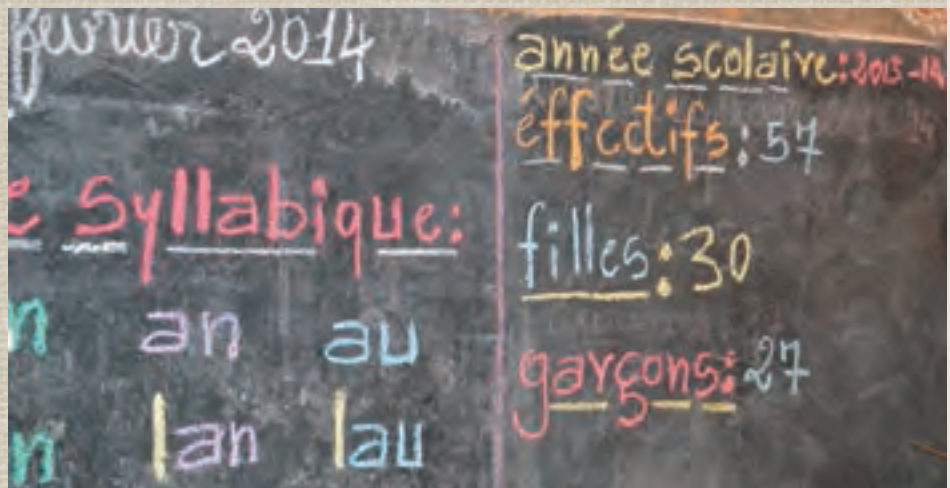 février 2014
e syllabique:
n an au
n lan lau
année scolaire: 2013-14
éffectifs: 57
filles: 30
garçons: 27